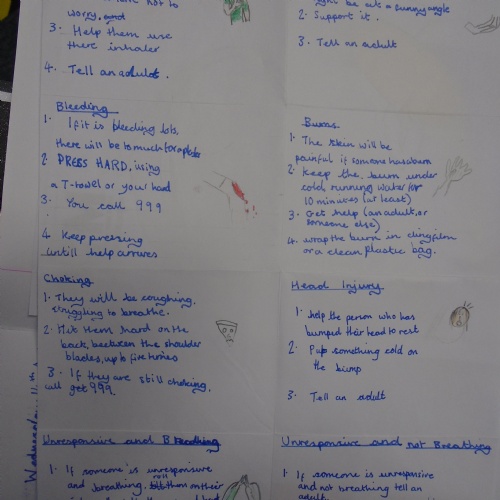 worry.
3. Help them use
there inhaler
4. Tell an adult.
angle
2. Support it.
3. Tell an adult
Bleeding
1. If it is bleeding lots,
there will be to much for a
2 PRESS HARD, using
a T-towel or your hand
3. You call 999
4 Keep pressing
untill help arrives
Burns
1. The skin will be
painful if someone has a burn
2. Keep the burn under
cold running water for
10 minutes (at least)
3. Get help (an adult, or
someone else)
4. wrap the burn in clingfilm
or a clean plastic bag.
Choking
1. They will be coughing.
struggling to breathe.
2. Hit them hard on the
back, beetween the shoulder
blades, up to five times
3. If they are still choking,
call get 999.
Head Injury
1. help the person who has
bumped their head to rest
2. Put something cold on
the bump
3. Tell an adult
Unresponsive and Breathing
1. If someone is unresponsive
and breathing. roll them on their
Unresponsive and not Breathing
1. If someone is unresponsive
and not breathing tell an
adult.